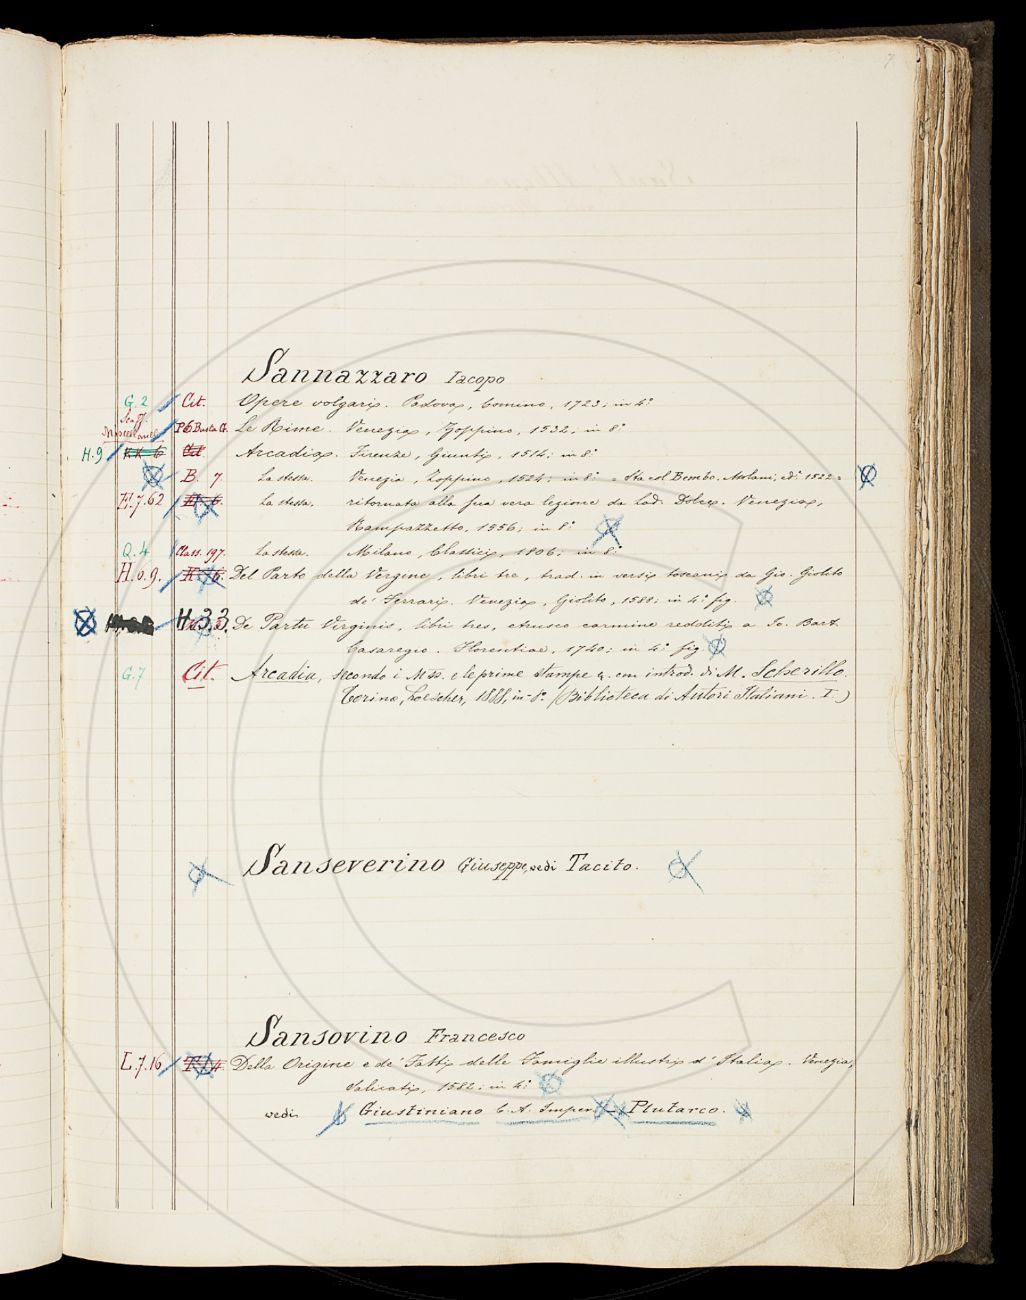 7
Sannazzaro Iacopo
G. 2 Cit. Opere volgari. Padova, Comino, 1723; in 4°
Scaff. Miscellanee P6 Busta G. Le Rime. Venezia, Zoppino, 1532; in 8°
H. 9 Arcadia. Firenze, Giunti, 1514; in 8°
B. 7 La stessa. Venezia, Zoppino, 1524; in 8°
E. 7. 62 La stessa, ritornata alla sua vera lezione da Lod. Dolce. Venezia,
Rampazzetto, 1556; in 8°
Q. 4 Class. 197. La stessa. Milano, Classici, 1806; in 8°
H. o. 9. Del Parto della Vergine, libri tre, trad. in versi toscani da Gio. Giolito
de' Ferrari. Venezia, Giolito, 1588; in 4° fig.
H. 3 3. De Partu Virginis, libri tres, etrusco carmine redditi a Jo. Bart.
Casaregio. Florentiae, 1740; in 4° fig
G. 7 Cit. Arcadia, secondo i Mss. e le prime stampe con introd. di M. Scherillo.
Torino, Loescher, 1888, in-8°. (Biblioteca di Autori Italiani. I.)
Sanseverino Giuseppe, vedi Tacito.
Sansovino Francesco
L. 7. 16 Della Origine e de' Fatti delle Famiglie illustri d'Italia. Venezia,
Salicati, 1582; in 4°
vedi Giustiniano C. A. Imper. – Plutarco.